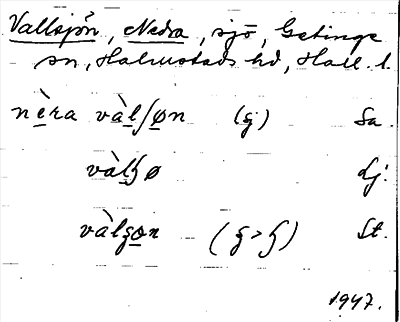 Vallsjön, Nedra, sjö, Getinge
sn, Halmstads hd, Hall. l.
nèra vàlʃøn (ɧ) Sa.
vàlɧø Lj.
vàlɧøn (ɧ > ʃ) St.
1947.